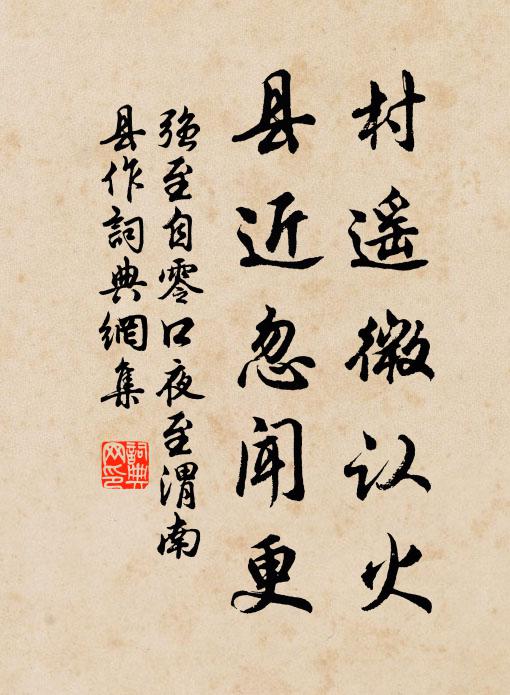 村遥微认火
县近忽闻更
强至自零口夜至渭南
县作詞典網集
詞典
网印